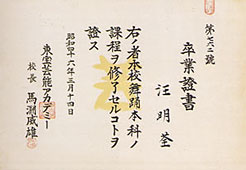 第六二號
卒業證書
汪明荃
右ノ者本校舞踊本科ノ
課程ヲ修了セルコトヲ
證ス
昭和四十六年三月十四日
東宝芸能アカデミー
校長 馬淵威雄